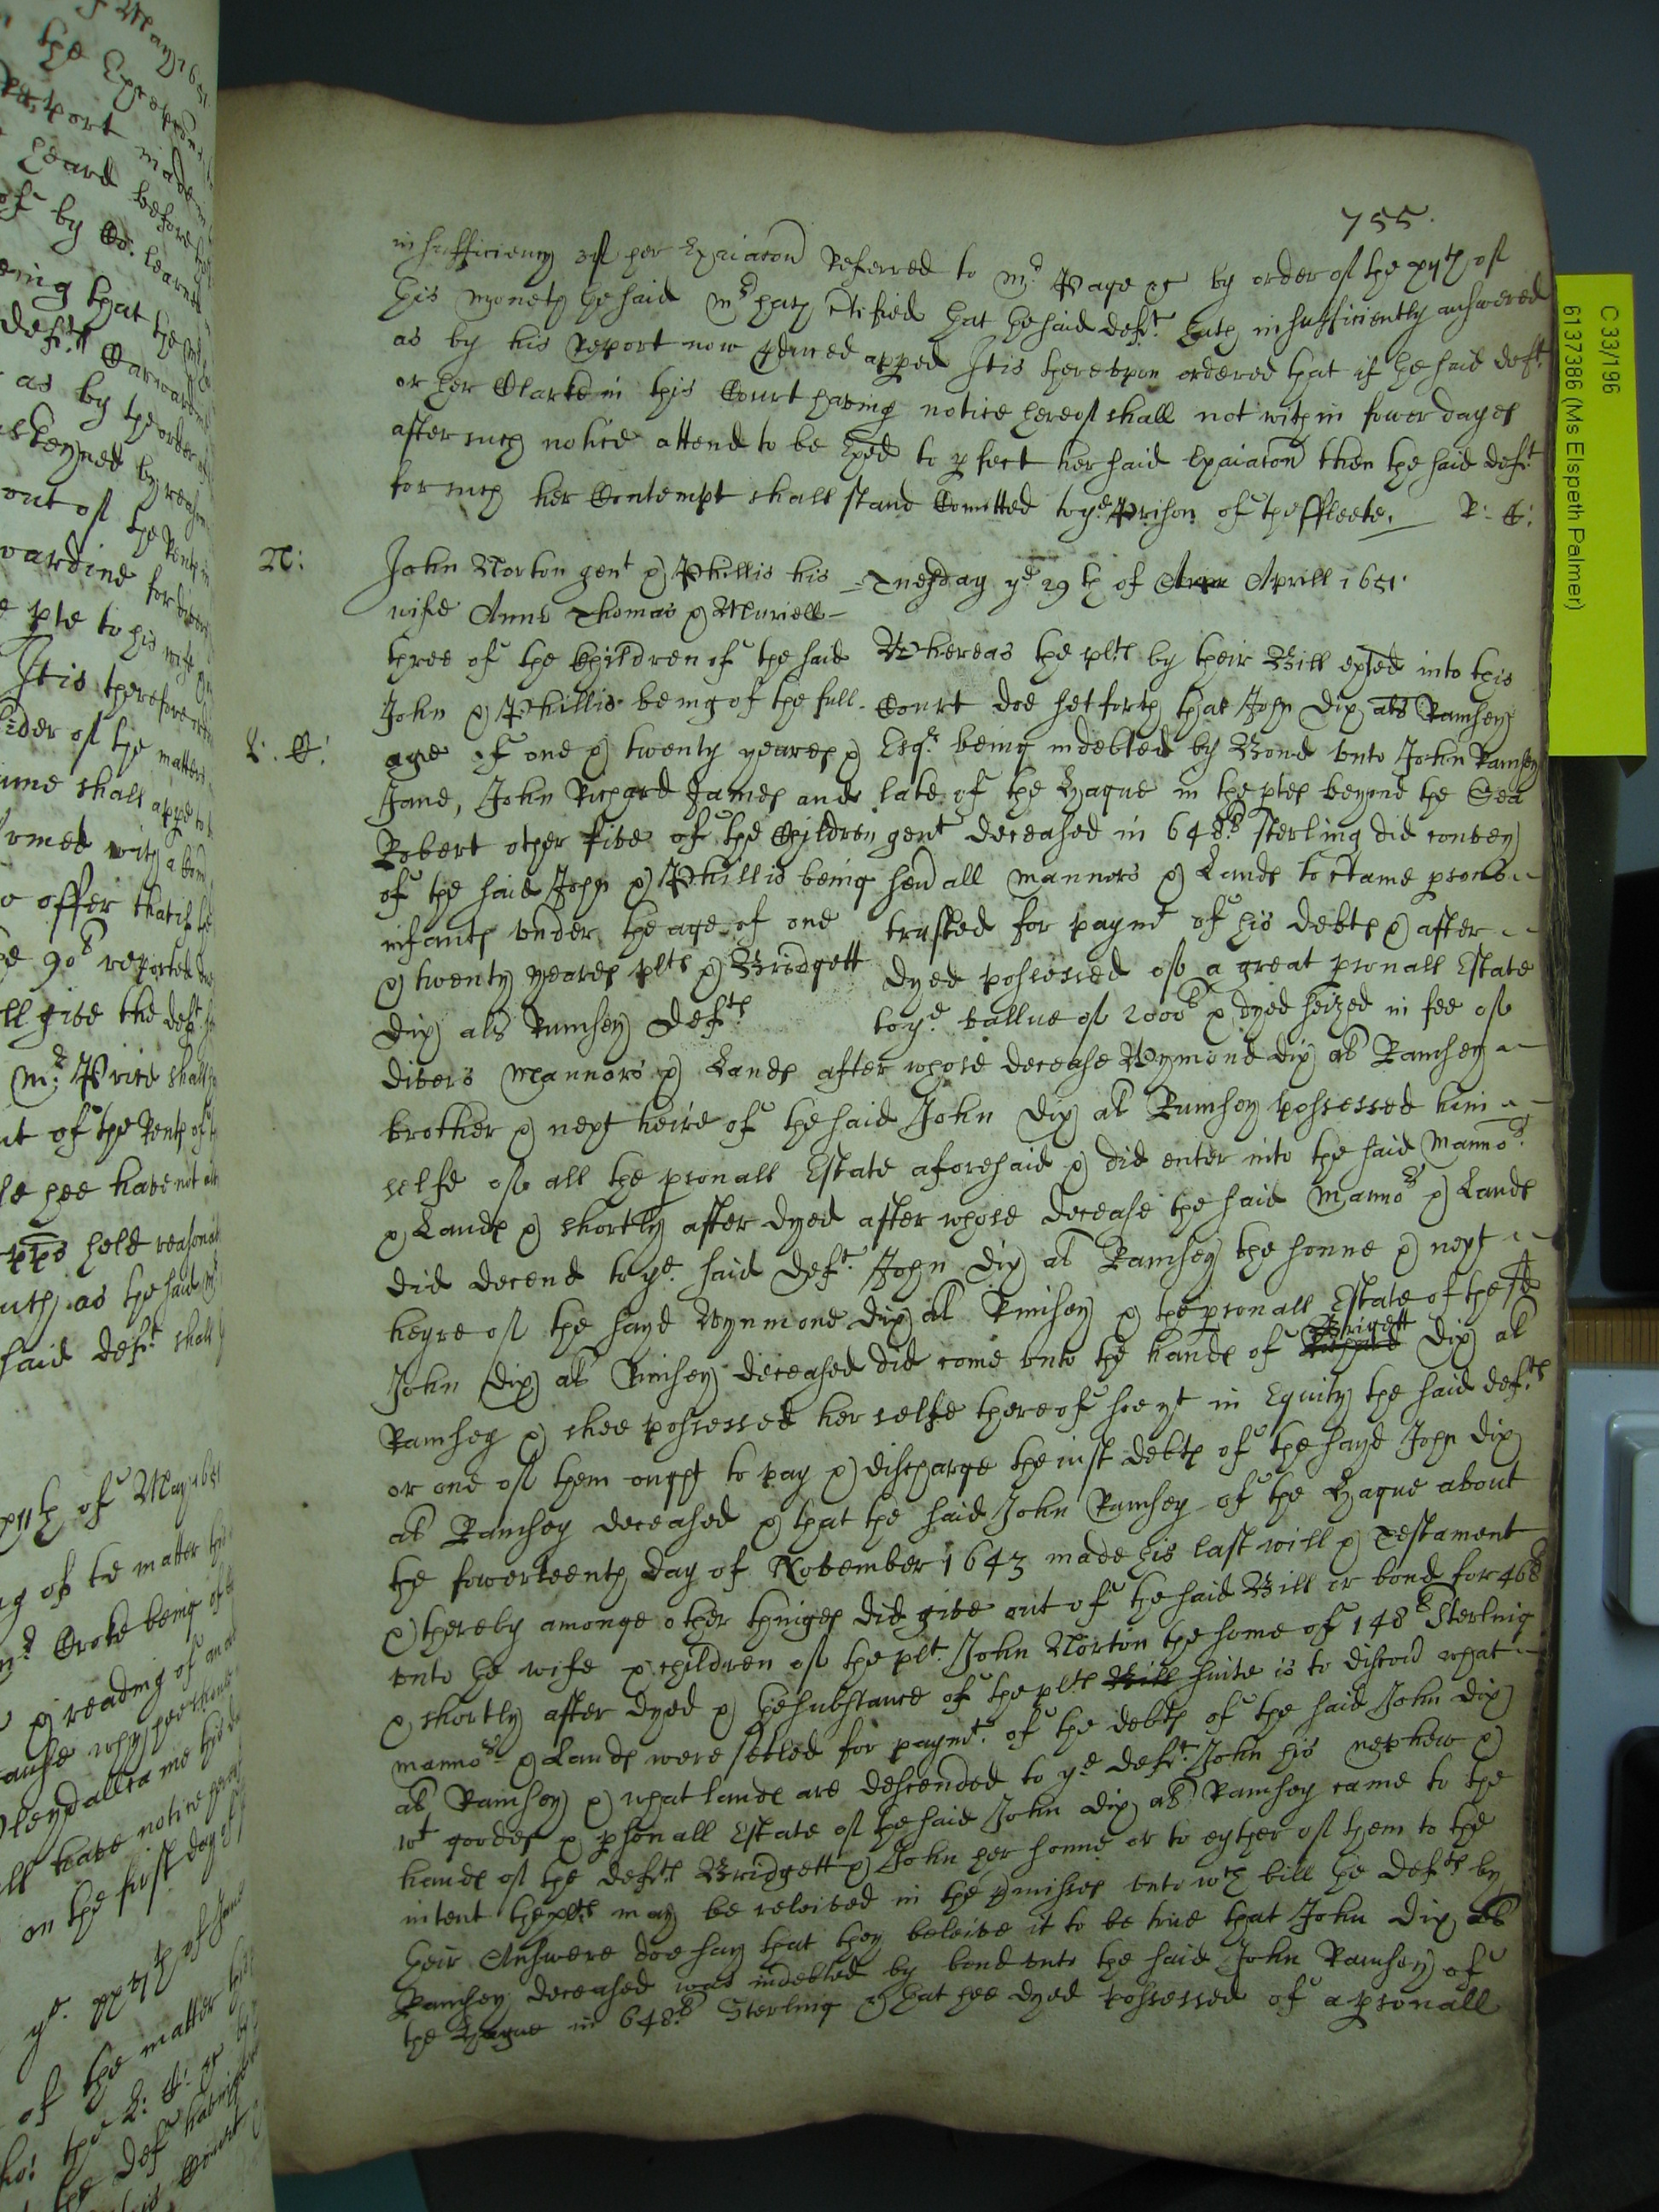 755.
insufficiency of her Exaiacon Referred to Mr. Page &c by order of the xyth of
this moneth the said Mr hath Ctified that the said deft. hath insufficiently answered
as by his Report now pduced apped It is therevpon ordered that if the said deft.
or her Clarke in this Court having notice hereof shall not within fower dayes
after such notice attend to be Exed to pfect her said Exaiacon then the said deft
for such her Contempt shall stand Comitted to ye. Prison of the ffleete. R: C:
N:
John Norton gent & Phillis his
wife Anne Thomas & Muriell
three of the Children of the said
John & Phillis being of the full
L. C:
age of one & twenty yeares &
Jane, John Richard James and
Robert other five of the Children
of the said John & Phillis being
infants vnder the age of one
& twenty yeares plts & Bridgett
Dix als Ramsey Defts
Tuesday ye 29th of Aprill 1651.
Whereas the plts by their Bill exted into this
Court doe set forth that John Dix als Ramsey
Esqr. being indebted by Bond vnto John Ramsey
late of the Hague in the ptes beyond the Sea
gent deceased in 648li sterling did convey
seuall mannors & Lands to ctaine psons
trusted for paymt of his debts & after
dyed possessed of a great psonall Estate
to ye. vallue of 2000li & dyed seized in fee of
divers Mannors & Lands after whose decease Wymond Dix als Ramsey
brother & next heire of the said John Dix als Ramsey possessed him
selfe of all the psonall Estate aforesaid & did enter into the said Mannors
& Lands & shortly after dyed after whose decease the said Mannors & Lands
did decend to ye. said deft. John Dix als Ramsey the sonne & next
heyre of the sayd Wynmond Dix als Ramsey & the psonall Estate of the sd
John Dix als Ramsey deceased did come vnto the hands of Brigett Dix als
Ramsey & shee possessed her selfe thereof soe yt in Equity the said defts
or one of them ought to pay & discharge the iust debts of the sayd John Dix
als Ramsey deceased & that the said John Ramsey of the Hague about
the fowerteenth day of November 1643 made his last will & Testament
& thereby amonge other thinges did give out of the said Bill or bond for 468li
vnto the wife & children of the plt. John Norton the some of 148li Sterling
& shortly after dyed & the substance of the plts Bill suite is to discou what
mannors & Lands were setled for paymt. of the debts of the said John Dix
als Ramsey & what lands are descended to ye deft. John his nephew &
wt goodes & psonall Estate of the said John Dix als Ramsey came to the
hands of the defts Bridgett & John her sonne or to eyther of them to the
intent the plts may be releived in the pmisses vnto wch bill the defts by
their Answere doe say that they beleive it to be true that John Dix als
Ramsey deceased was indebted by bond vnto the said John Ramsey of
the Hague in 648li Sterling & that hee dyed possessed of a psonall
C 33/196
6137386 (Ms Elspeth Palmer)